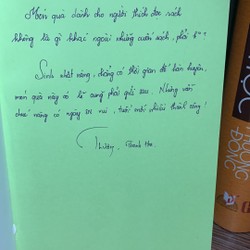 Món quà dành cho người thích đọc sách
không là gì khác ngoài những cuốn sách, phải k°?
Sinh nhật nàng, chẳng có thời gian để hàn huyên,
món quà này có lẽ cũng phải gửi sau. Nhưng vẫn
chúc nàng có ngày SN vui, tuổi mới nhiều thành công!
Thương,